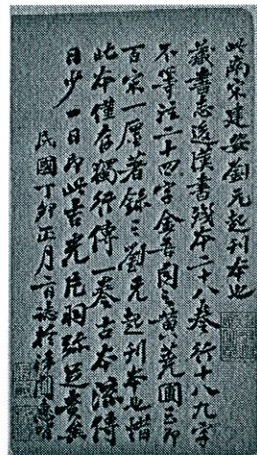 此南宋建安劉元起刊本也
藏書志後漢書殘本二十八卷行十八九字
不等注二十四字金吾目之黃蕘圃
百宋一廛著錄之劉元起刊本也惜
此本僅存獨行傳一卷古本流傳
日少一日即此吉光片羽弥足貴矣
民國丁卯正月二日誌於